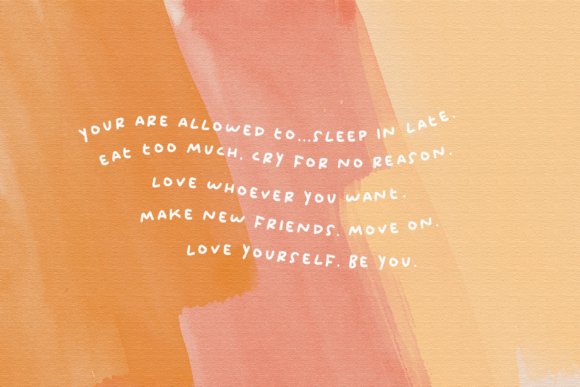 YOUR ARE ALLOWED to...SLEEP IN LATE.
EAT TOO MUCH. CRY FOR NO REASON.
LOVE WHOEVER YOU WANT.
MAKE NEW FRIENDS. MOVE ON.
LOVE YOURSELF. BE YOU.